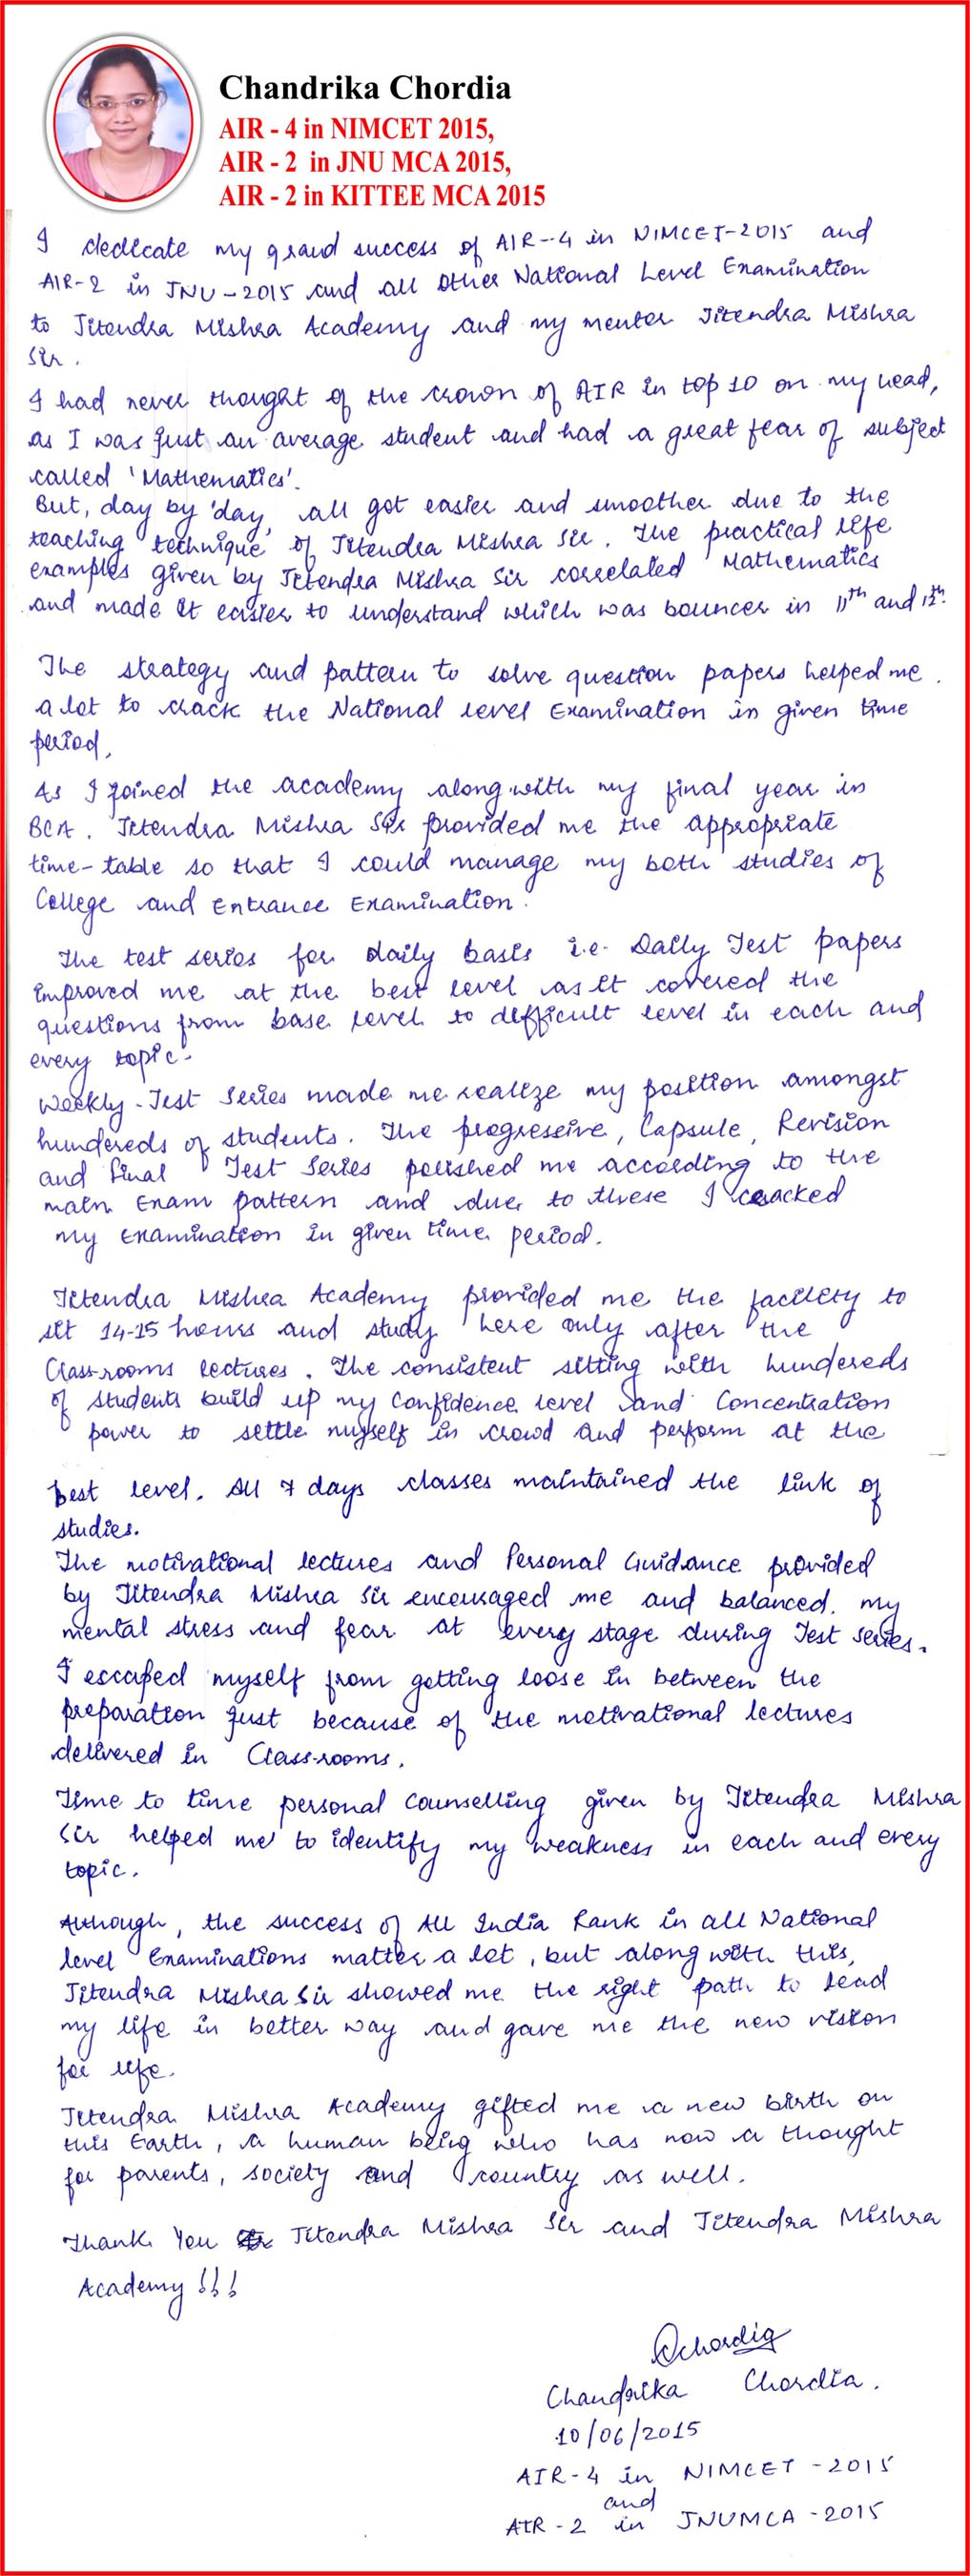 Chandrika Chordia
AIR - 4 in NIMCET 2015,
AIR - 2 in JNU MCA 2015,
AIR - 2 in KITTEE MCA 2015
I dedicate my grand success of AIR-4 in NIMCET-2015 and
AIR-2 in JNU-2015 and all other National Level Examination
to Jitendra Mishra Academy and my mentor Jitendra Mishra
Sir.
I had never thought of the crown of AIR in top 10 on my head,
as I was just an average student and had a great fear of subject
called 'Mathematics'.
But, day by day, all got easier and smoother due to the
teaching technique of Jitendra Mishra Sir. The practical life
examples given by Jitendra Mishra Sir correlated Mathematics
and made it easier to understand which was bouncer in 11th and 12th.
The strategy and pattern to solve question papers helped me
a lot to crack the National level Examination in given time
period.
As I joined the academy along with my final year in
BCA. Jitendra Mishra Sir provided me the appropriate
time-table so that I could manage my both studies of
College and Entrance Examination.
The test series for daily basis i.e. Daily Test papers
improved me at the best level as it covered the
questions from base level to difficult level in each and
every topic.
Weekly-Test Series made me realize my position amongst
hundereds of students. The progressive, Capsule, Revision
and final Test Series polished me according to the
main Exam pattern and due to these I cracked
my Examination in given time period.
Jitendra Mishra Academy provided me the facility to
sit 14-15 hours and study here only after the
Class-rooms lectures. The consistent sitting with hundereds
of students build up my confidence level and Concentration
power to settle myself in crowd and perform at the
best level. All 7 days classes maintained the link of
studies.
The motivational lectures and Personal Guidance provided
by Jitendra Mishra Sir encouraged me and balanced my
mental stress and fear at every stage during Test Series.
I escaped myself from getting loose in between the
preparation just because of the motivational lectures
delivered in Class-rooms.
Time to time personal counselling given by Jitendra Mishra
Sir helped me to identify my weakness in each and every
topic.
Although, the success of All India Rank in all National
level Examinations matter a lot, but along with this,
Jitendra Mishra Sir showed me the right path to lead
my life in better way and gave me the new vision
for life.
Jitendra Mishra Academy gifted me a new birth on
this Earth, a human being who has now a thought
for parents, society and country as well.
Thank You Jitendra Mishra Sir and Jitendra Mishra
Academy!!!
Cchordia
Chandrika Chordia.
10/06/2015
AIR-4 in NIMCET-2015
and
AIR-2 in JNUMCA-2015